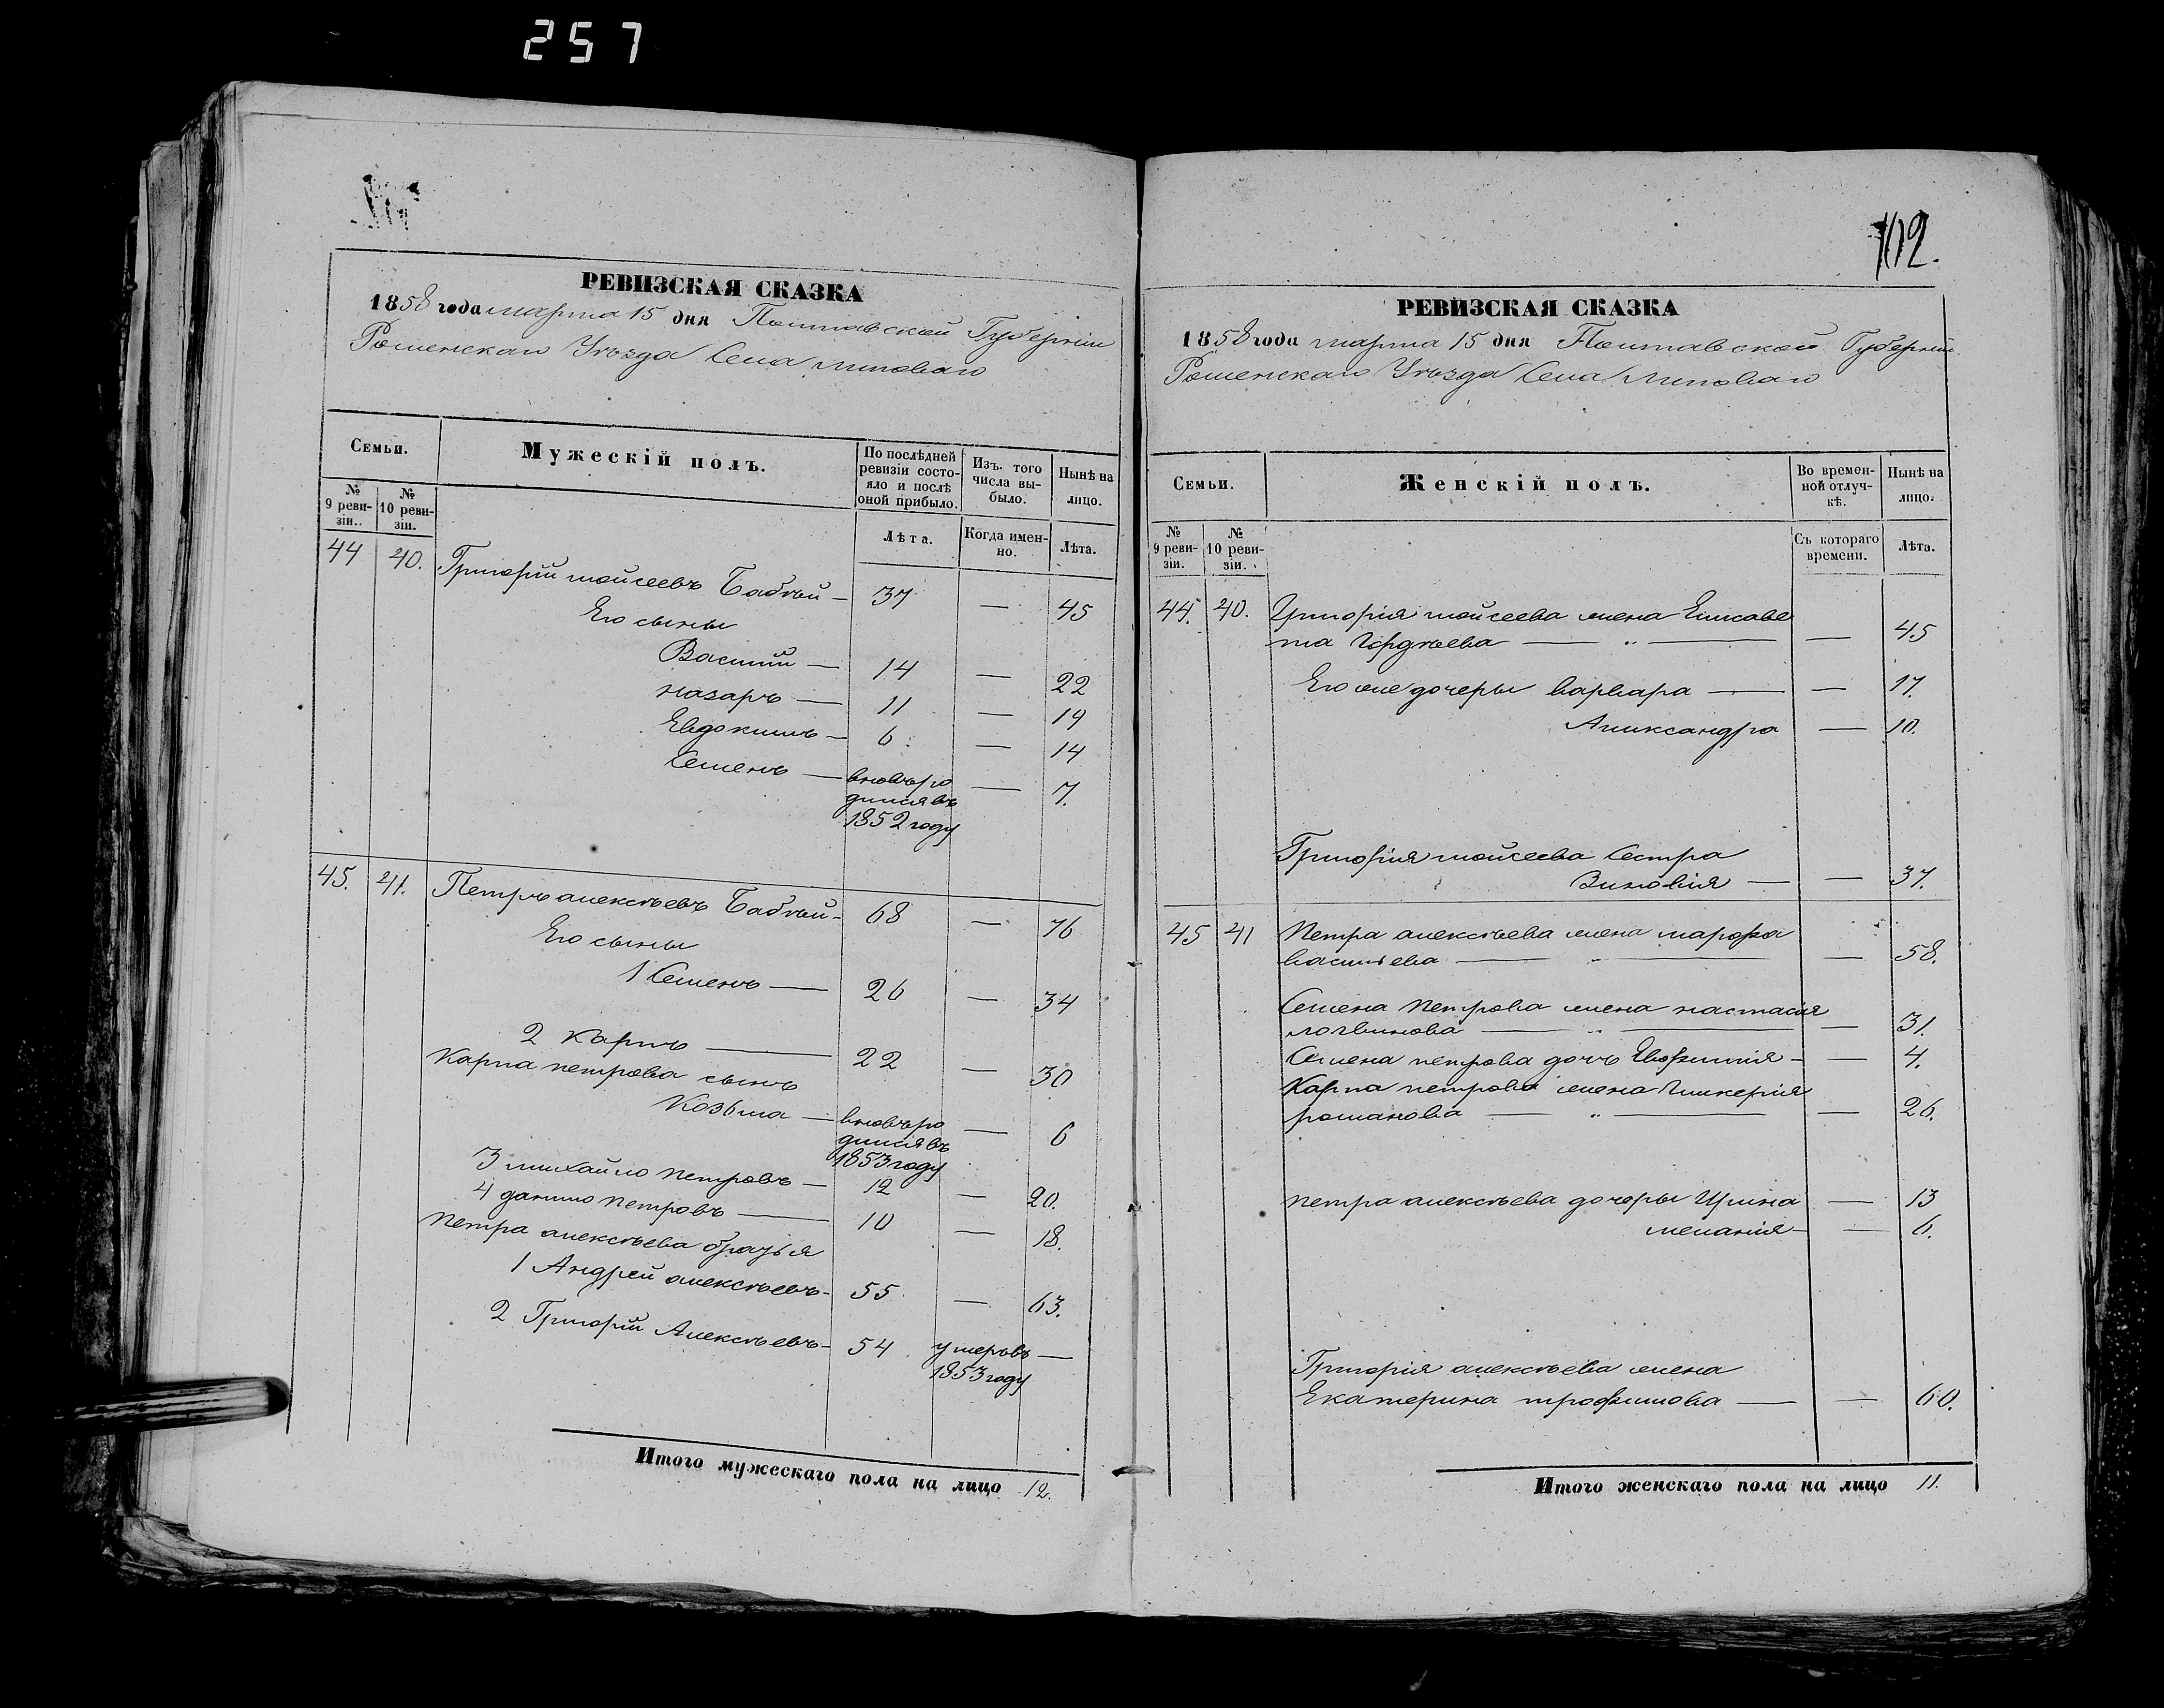 257
РЕВИЗСКАЯ СКАЗКА
1858 года марта 15 дня Полтавской Губерніи
Роменскаго Уѣзда Села Липоваго
Семьи.
Мужескій полъ.
По послѣдней ревизіи состояло и послѣ оной прибыло.
Изъ того числа выбыло.
Нынѣ на лицо.
№ 9 ревизіи.
№ 10 ревизіи.
Лѣта.
Когда именно.
Лѣта.
44 40. Григорій моисеевъ Бабтый — 37 — 45
Его сыны
Василій — 14 — 22
назаръ — 11 — 19
Евдокимъ — 6 — 14
Семенъ — вновьро — 7.
дилсявъ
1852 году
45. 41. Петръ алексѣевъ Бабтый — 68 — 76
Его сыны
1 Семенъ — 26 — 34
2 Карпъ — 22 — 30
Карпа петрова сынъ
Козьма — вновьро — 6
дилсявъ
1853 году
3 михайло петровъ — 12 — 20.
4 данило петровъ — 10 — 18.
петра алексѣева братья
1 Андрей алексѣевъ — 55 — 63.
2 Григорій Алексѣевъ — 54 умеръвъ —
1853 году
Итого мужескаго пола на лицо 12.
102.
РЕВИЗСКАЯ СКАЗКА
1858 года марта 15 дня Полтавской Губерніи
Роменскаго Уѣзда Села Липоваго
Семьи.
Женскій полъ.
Во временной отлучкѣ.
Нынѣ на лицо.
№ 9 ревизіи.
№ 10 ревизіи.
Съ котораго времени.
Лѣта.
44. 40. Григорія моисеева жена Елисаве
та Гордѣева — „ — — 45
Его же дочеры варвара — — 17.
Алихсандра — 10.
Григорія моисеева Сестра
Зиновія — — 37.
45 41 Петра алексѣева жена марфа
васильева — „ — — 58.
Семена Петрова жена настасія
логвинова — „ — — 31.
Семена петрова дочь Евфимія — — 4.
Карпа петрова жена Гликерія
романова — „ — — 26.
петра алексѣева дочеры Ирина — 13
меланія — — 6.
Григорія алексѣева жена
Екатерина трофимова — — 60.
Итого женскаго пола на лицо 11.